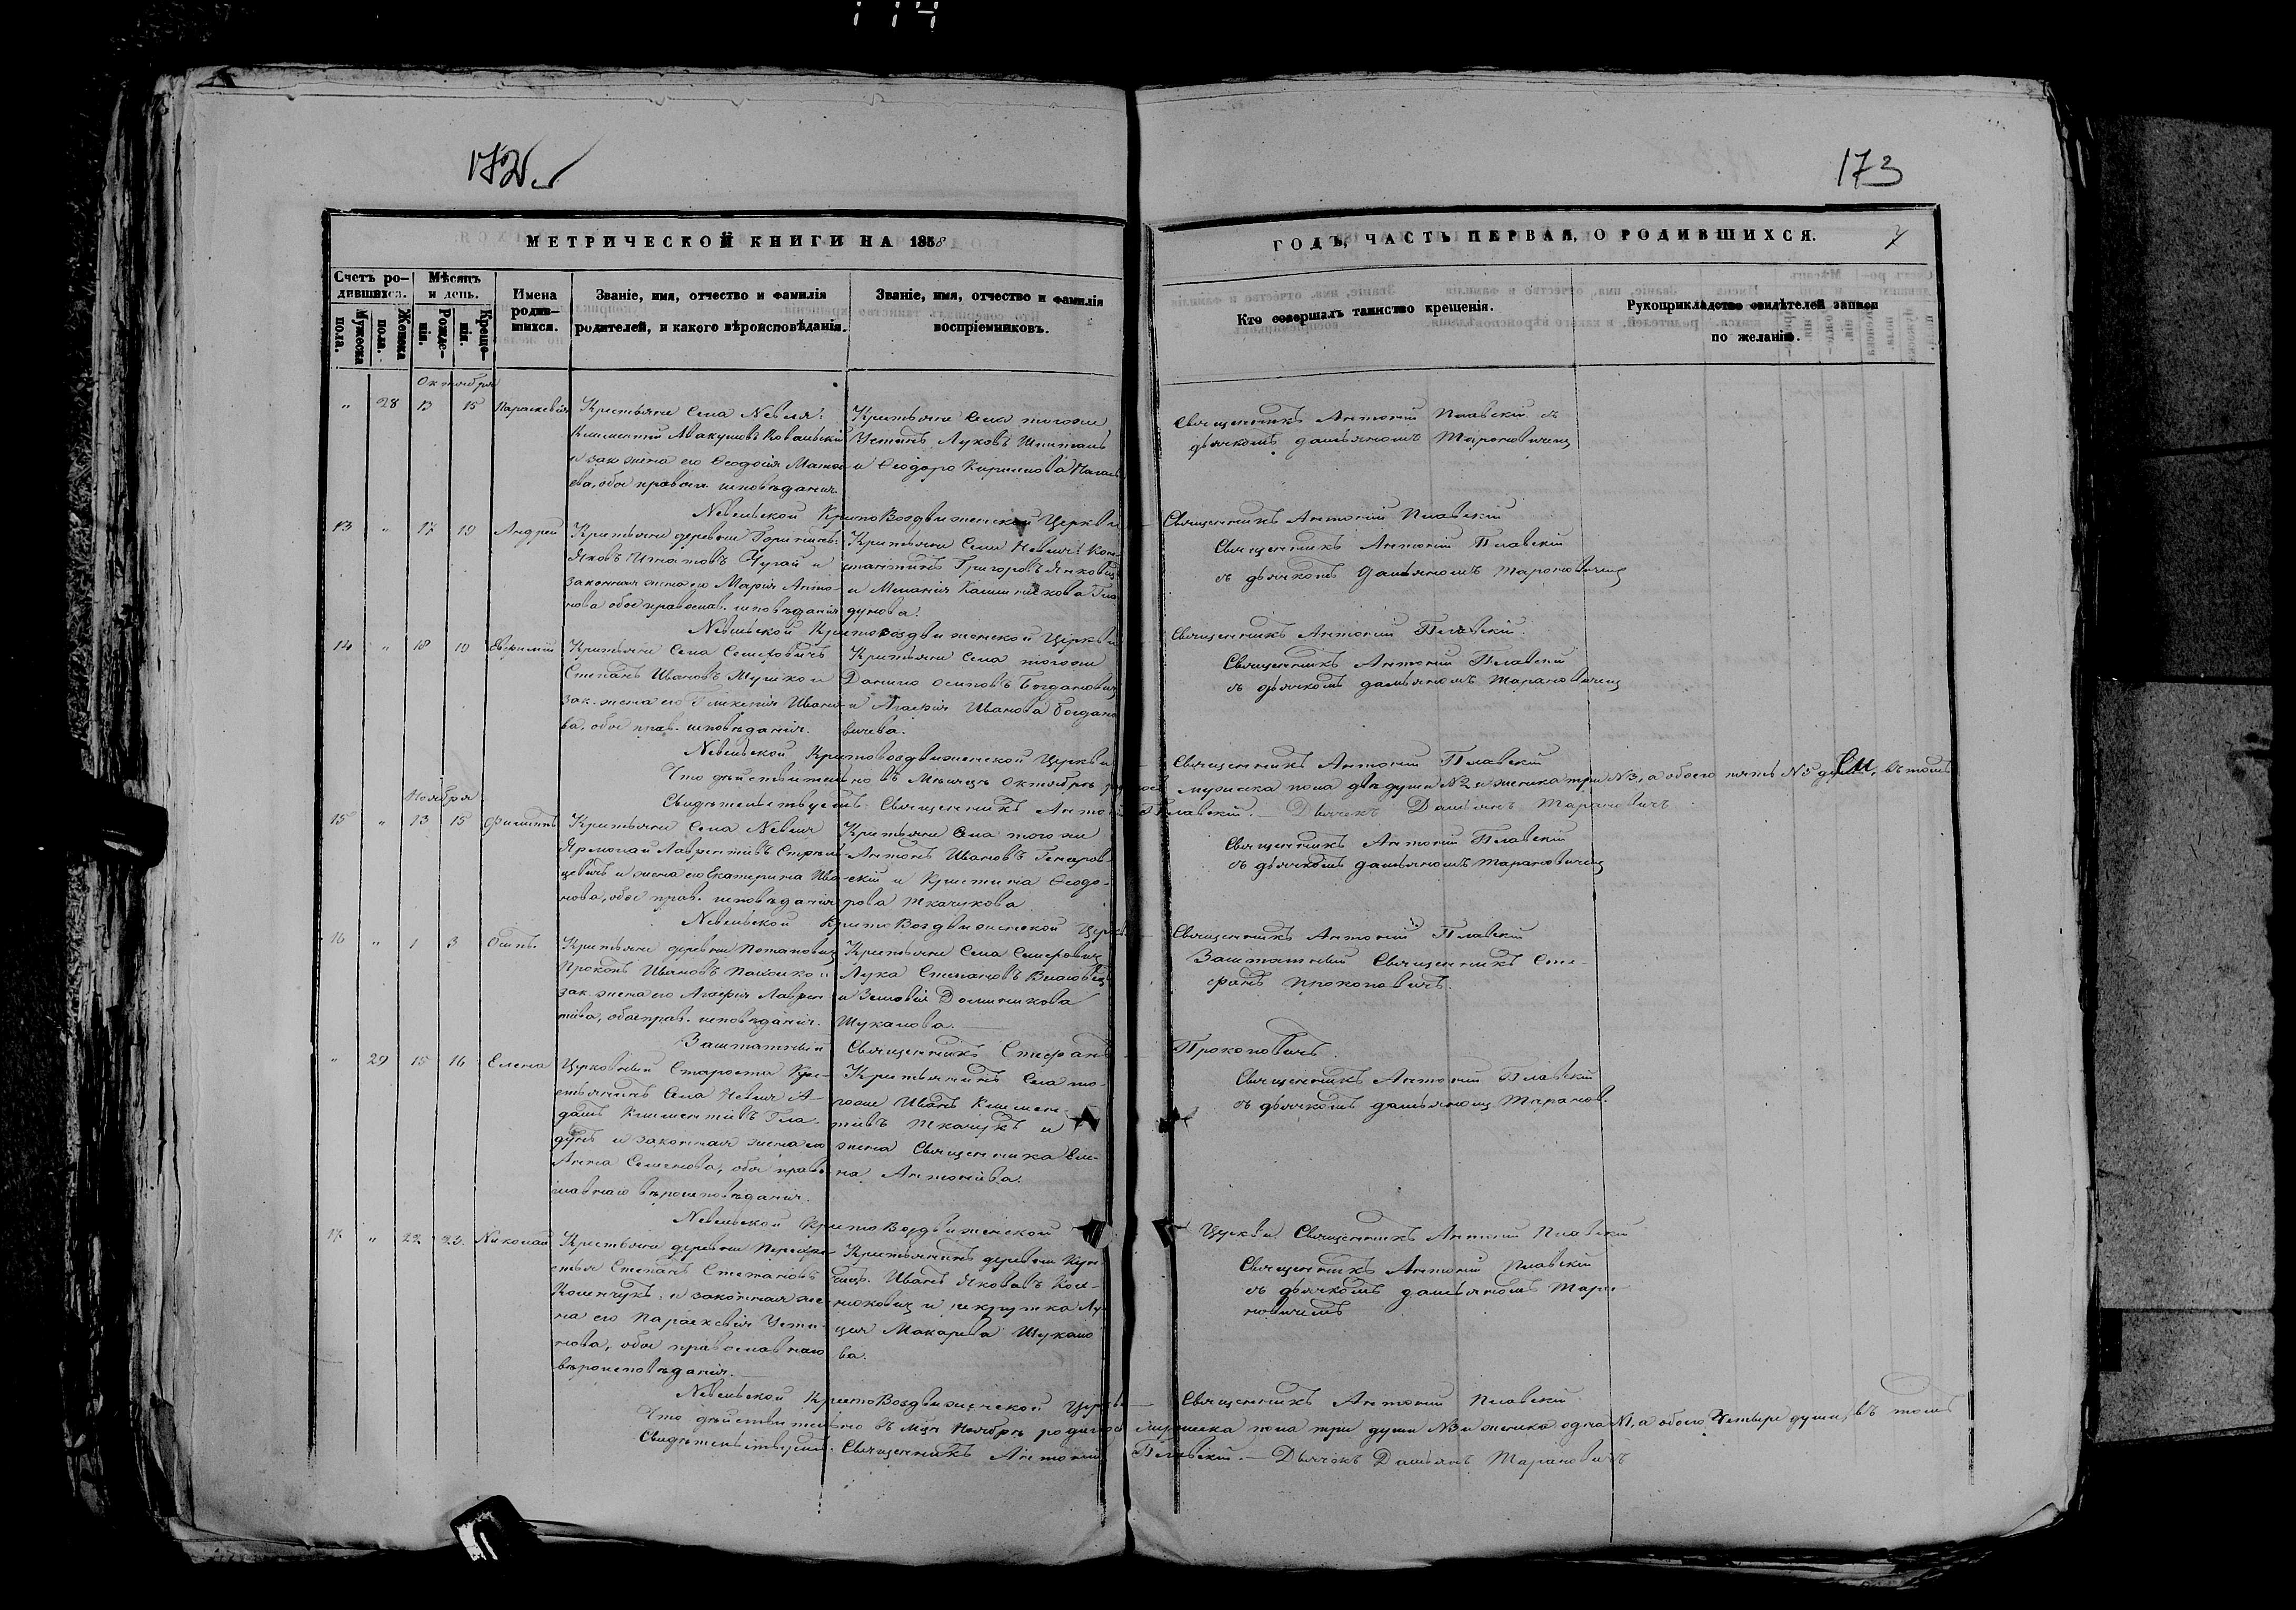 114
172
173
МЕТРИЧЕСКОЙ КНИГИ НА 1858
ГОДЪ, ЧАСТЬ ПЕРВАЯ, О РОДИВШИХСЯ.
7
Счетъ ро-
дившихся.
Мужеска
пола.
Женска
пола.
Мѣсяцъ
и день.
Рожде-
нія.
Креще-
нія.
Имена
родив-
шихся.
Званіе, имя, отчество и фамилія
родителей, и какого вѣроисповѣданія.
Званіе, имя, отчество и фамилія
воспріемниковъ.
Кто совершалъ таинство крещенія.
Рукоприкладство свидѣтелей записи
по желанію.
Октября
" 28 13 15 Параскевія
Крестьяне Села Невеля:
Климентій Авакумовъ Ковальскій
и зак. жена его Ѳеодосія Матѳе
ева, обое правосл. исповѣданія.
Крестьяне Села тогоже
Устинъ Луковъ
и Ѳеодора Кириллова
Священникъ Антоній Плавскій съ
дьячкомъ Даміяномъ Тарановичемъ
Невельской Кресто Воздвиженской Церкви
Священникъ Антоній Плавскій
13 " 17 19 Андрей
Крестьяне деревни
Яковъ Игнатовъ Чугай и
законная жена его Марія Анто-
нова обое православ. исповѣданія
Крестьяне Села Невеля: Кон-
стантинъ Григоровъ Янковецъ
и Меланія Каленикова Гла
дунова.
Священникъ Антоній Плавскій
съ дьячкомъ Даміяномъ Тарановичемъ
Невельской Крестовоздвиженской Церкви
Священникъ Антоній Плавскій.
14 " 18 19 Евфимій
Крестьяне Села Семеховичъ
Степанъ Ивановъ Мушко и
зак. жена его Гликерія Ивано-
ва, обое прав. исповѣданія.
Крестьяне Села тогоже
Данило Осиповъ Богдановичъ
и Агафія Иванова Богдано
вичева.
Священникъ Антоній Плавскій
съ дьячкомъ Даміяномъ Тарановичемъ
Невельской Крестовоздвиженской Церкви
Священникъ Антоній Плавскій
Что дѣйствительно въ Мѣсяцѣ Октябрѣ мужеска пола двѣ души №2 и женска три №3, а обоего пять №5 душъ, въ томъ
Свидѣтельствуемъ: Священникъ Антоній Плавскій. — Дьячекъ Даміянъ Тарановичъ
Ноября
15 " 13 15 Филиппъ
Крестьяне Села Невеля
Ярмолай Лаврентіевъ Стрель
цевичъ и жена его Екатерина Ива
нова, обое прав. исповѣданія
Крестьяне Села тогоже
Антонъ Ивановъ
скій и Кристина Ѳеодо-
рова Ткачукова
Священникъ Антоній Плавскій
съ дьячкомъ Даміяномъ Тарановичемъ
Невельской Кресто Воздвиженской Церкви
Священникъ Антоній Плавскій
16 " 1 3 Осипъ.
Крестьяне деревни Потаповичъ
Прокопъ Ивановъ
зак. жена его Агафія Лаврен
тіева, обое прав. исповѣданія.
Крестьяне Села Семеховичъ
Лука Степановъ
и Зеновія Доминикова
Шуканова.
Заштатный Священникъ Сте-
фанъ Прокоповичъ.
Заштатный Священникъ Стефанъ Прокоповичъ.
" 29 15 16 Елена
Церковный Староста Кре-
стьянинъ Села Невеля А-
дамъ Климентіевъ Гла-
дунъ и законная жена его
Анна Семенова, обое право
славнаго вѣроисповѣданія.
Крестьянинъ Села то-
гоже Иванъ Климен-
тіевъ Ткачукъ и
жена Священника Еле-
на Антоніева.
Священникъ Антоній Плавскій
съ дьячкомъ Даміяномъ Таранов.
Невельской Кресто Воздвиженской
Церкви Священникъ Антоній Плавскій
17 " 22 23 Николай
Крестьяне деревни Перехре-
стья Степанъ Степановъ
и законная же-
на его Параскевія Усти-
нова, обое православнаго
вѣроисповѣданія.
Крестьянинъ деревни
Иванъ Яковлевъ
и рекрутка Лу-
ція Макарева Шукано
ва.
Священникъ Антоній Плавскій
съ дьячкомъ Даміяномъ Тара-
новичемъ
Невельской Кресто Воздвиженской Церкви
Священникъ Антоній Плавскій
Что дѣйствительно въ мцѣ Ноябрѣ родилось мужеска пола три души №3 и женска одна №1, а обоего Четыре души, въ томъ
Свидѣтельствуемъ: Священникъ Антоній Плавскій. — Дьячекъ Даміянъ Тарановичъ